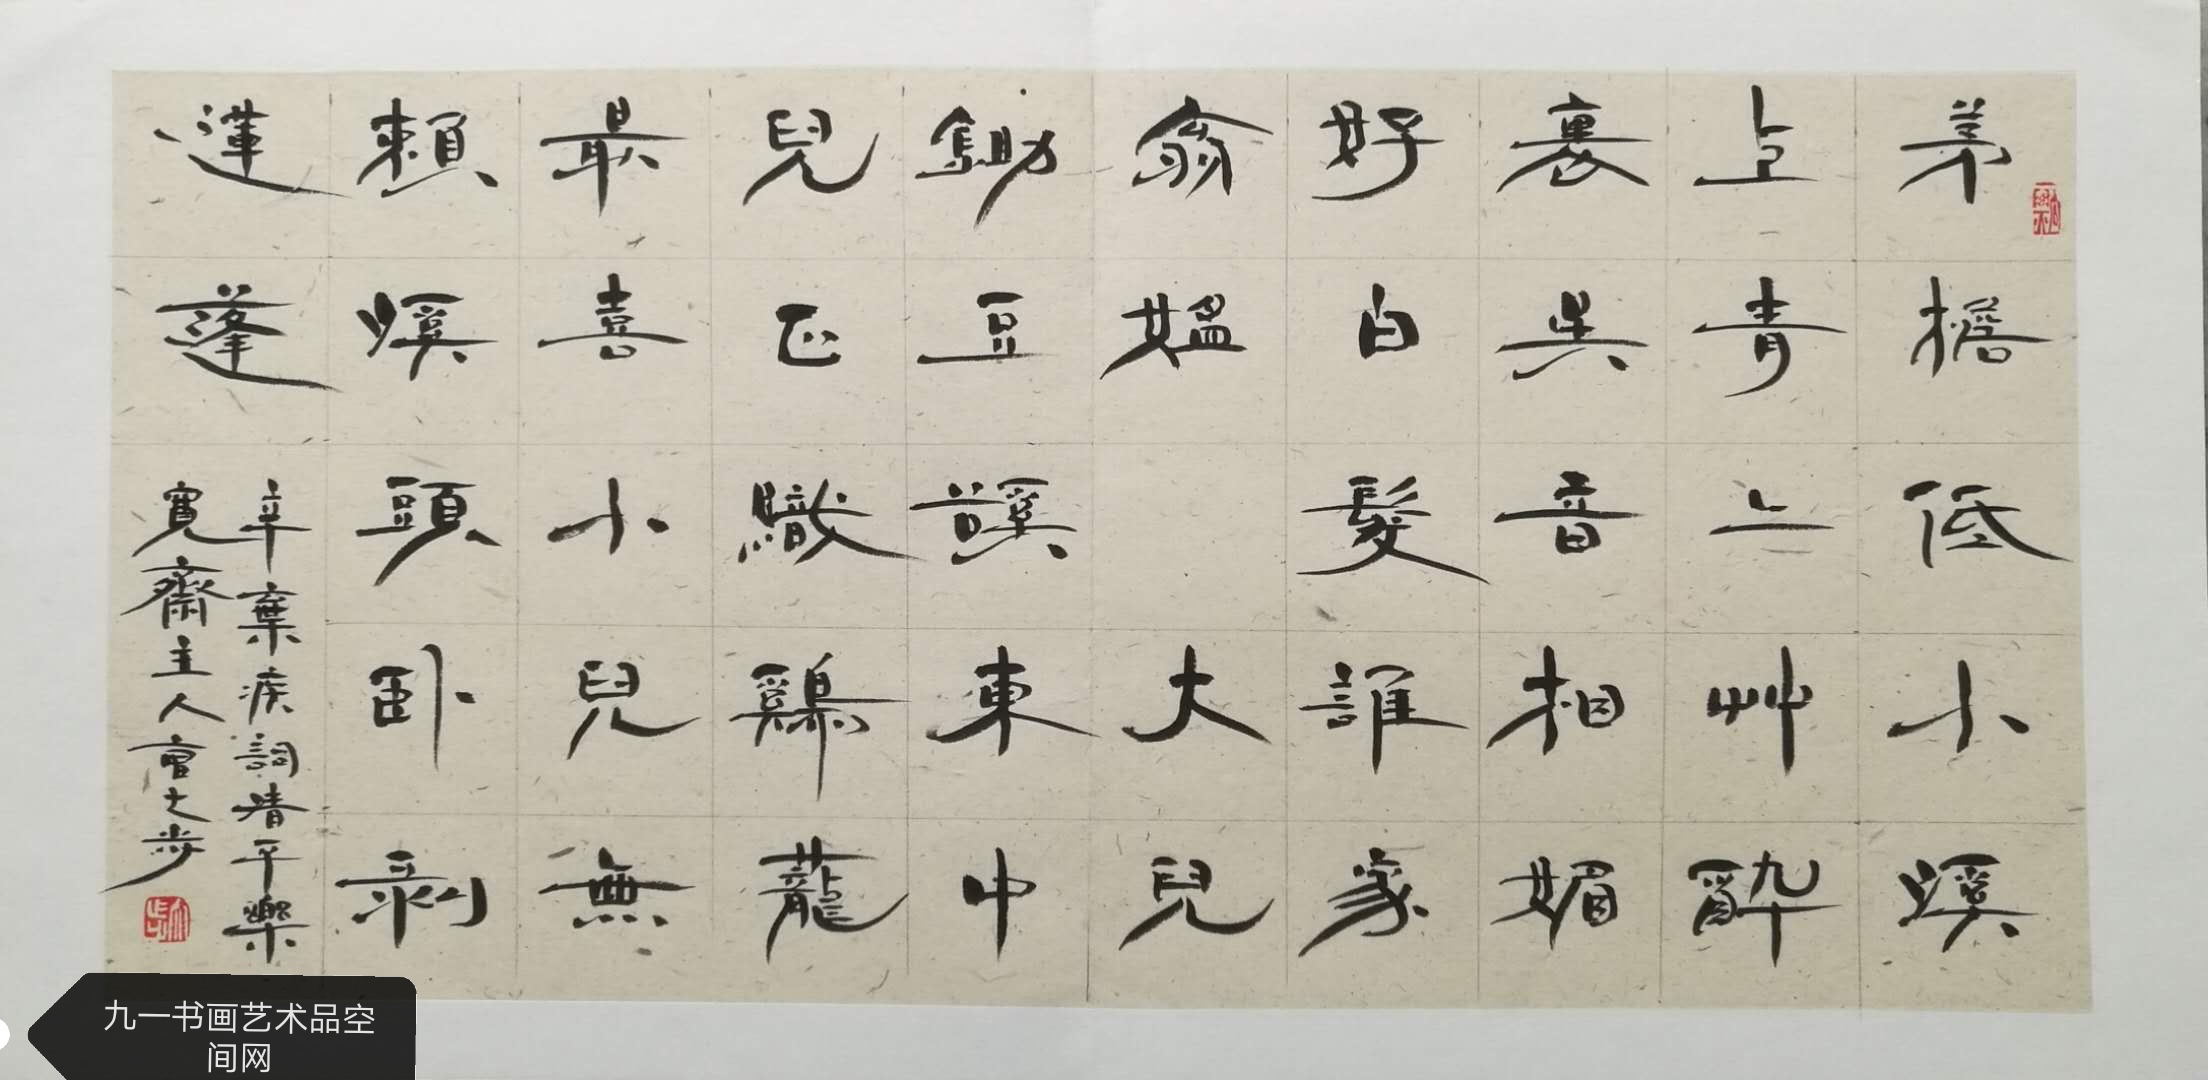 茅檐低小溪
上青〻艸醉
裏吳音相媚
好白髮誰家
翁媼 大兒
鋤豆谿東中
兒正織鷄蘢
最喜小兒無
賴溪頭卧剥
蓮蓬
辛棄疾詞清平樂
寬齋主人大步
九一书画艺术品空
间网